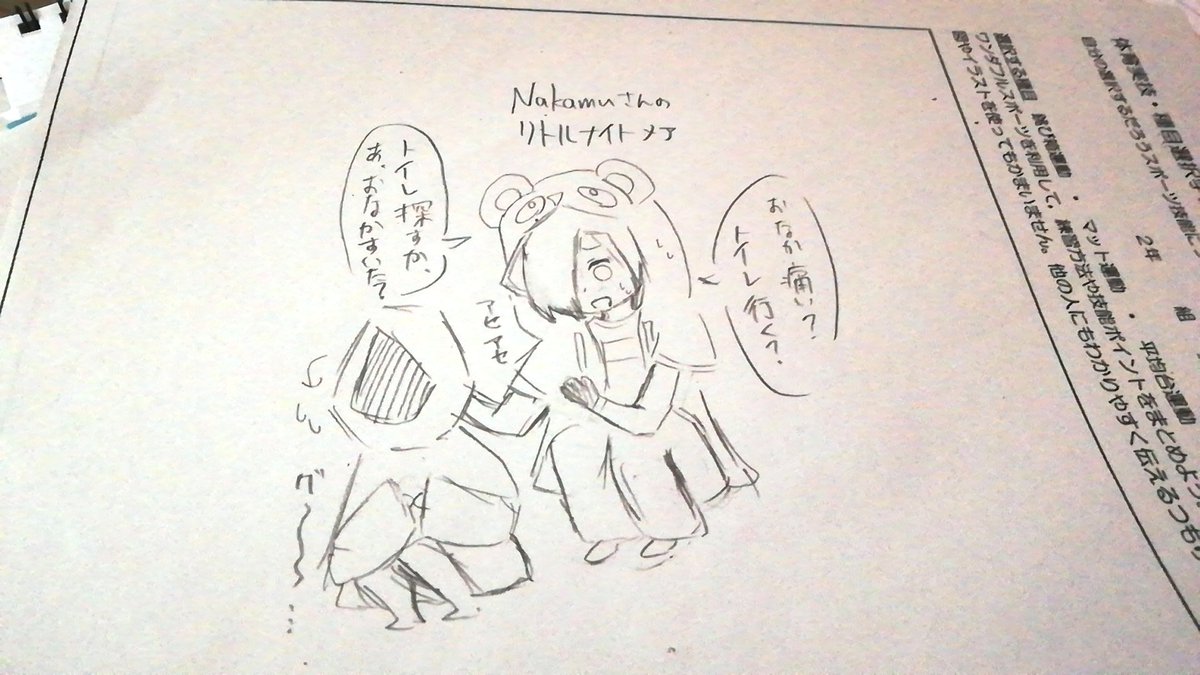 Nakamuさんの
リトルナイトメア
おなか痛い?
トイレ行く?
トイレ探すか、
あ、おなかすいた?
アセアセ
グ〜〜…
体育実技・種目選択
自分の選択するだろうスポーツ技能に
2年 組
選択する種目 跳び箱運動 ・ マット運動 ・ 平均台運動
ワンダフルスポーツを利用して、練習方法や技能ポイントをまとめよう
図やイラストを使ってもかまいません。他の人にもわかりやすく伝えるつもり